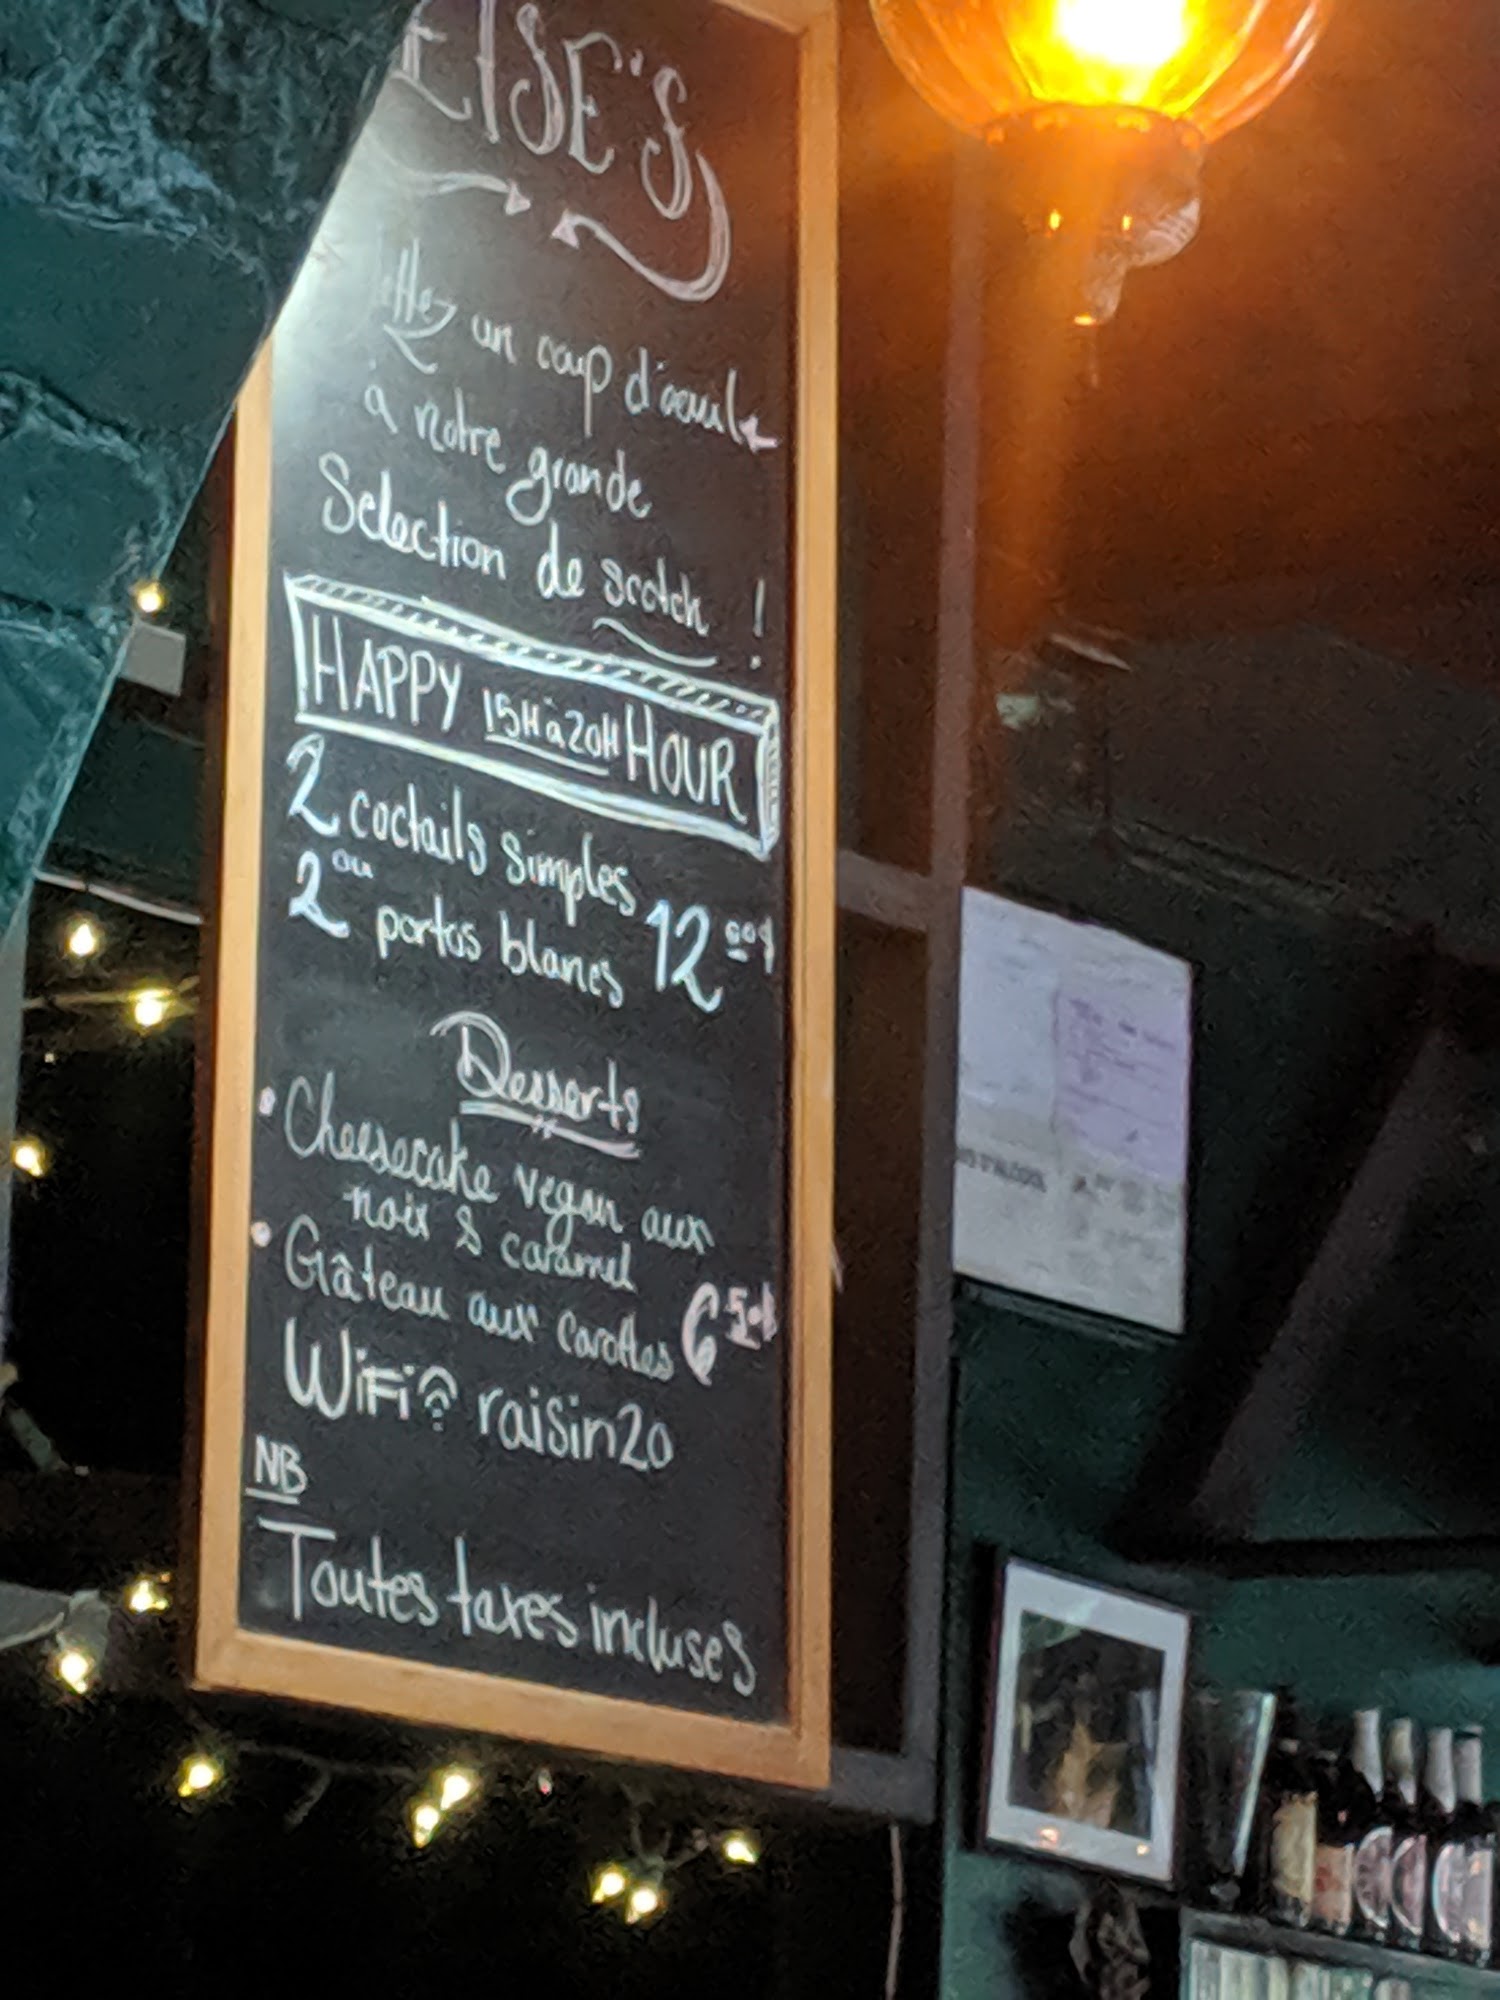 ELSE'S
Jettez un coup d'oeuil
à notre grande
Selection de scotch !
HAPPY 15H à 20H HOUR
2 coctails simples
ou
2 portos blancs 12 00$
Desserts
• Cheesecake vegan aux
noix & caramel
• Gâteau aux carottes 6 50$
WiFi raisin20
NB
Toutes taxes incluses